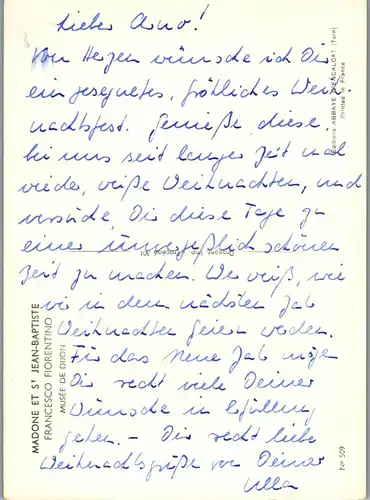 Lieber Arno!
Von Herzen wünsche ich Dir
ein gesegnetes, fröhliches Weih-
nachtsfest. Genieße diese,
bei uns seit langer Zeit mal
wieder, weiße Weihnachten, und
versuche, Dir diese Tage zu
einer unvergeßlich schönen
Zeit zu machen. Wer weiß, wie
wir in dem nächsten Jahr
Weihnachten feiern werden.
Für das Neue Jahr mögen
Dir recht viele Deiner
Wünsche in Erfüllung
gehen. - Dir recht liebe
Weihnachtsgrüße von Deiner
Ulla
MADONE ET Sᵀ JEAN-BAPTISTE
FRANCESCO FIORENTINO
MUSÉE DE DIJON
Editions ABBAYE D'ENCALCAT (Tarn)
Printed in France
Nº 509